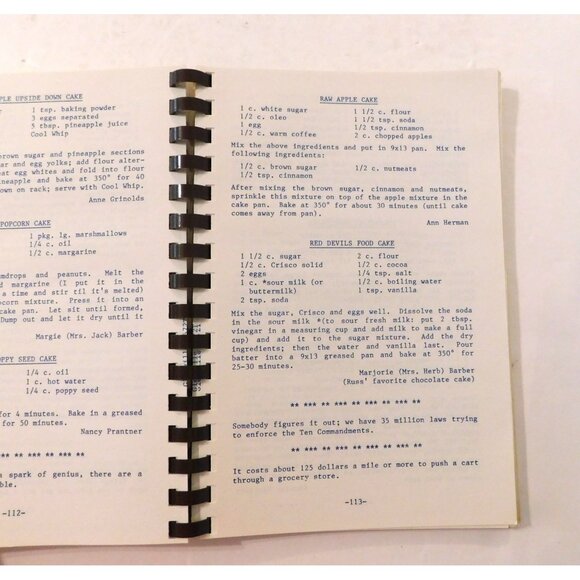 PLE UPSIDE DOWN CAKE
1 tsp. baking powder
3 eggs separated
5 tbsp. pineapple juice
Cool Whip
brown sugar and pineapple sections
ar and egg yolks; add flour alter-
eat egg whites and fold into flour
ineapple and bake at 350° for 40
down on rack; serve with Cool Whip.
Anne Grinolds
POPCORN CAKE
1 pkg. lg. marshmallows
1/4 c. oil
1/2 c. margarine
mdrops and peanuts. Melt the
d margarine (I put it in the
a time and stir til it's melted)
pcorn mixture. Press it into an
cake pan. Let sit until formed,
Dump out and let it dry until it
Margie (Mrs. Jack) Barber
OPPY SEED CAKE
1/4 c. oil
1 c. hot water
1/4 c. poppy seed
for 4 minutes. Bake in a greased
for 50 minutes.
Nancy Prantner
*** ** *** ** *** ** *** ** ***
a spark of genius, there are a
ble.
-112-
RAW APPLE CAKE
1 c. white sugar 1 1/2 c. flour
1/2 c. oleo 1 1/2 tsp. soda
1 egg 1/2 tsp. cinnamon
1/2 c. warm coffee 2 c. chopped apples
Mix the above ingredients and put in 9x13 pan. Mix the
following ingredients:
1/2 c. brown sugar 1/2 c. nutmeats
1/2 tsp. cinnamon
After mixing the brown sugar, cinnamon and nutmeats,
sprinkle this mixture on top of the apple mixture in the
cake pan. Bake at 350° for about 30 minutes (until cake
comes away from pan).
Ann Herman
RED DEVILS FOOD CAKE
1 1/2 c. sugar 2 c. flour
1/2 c. Crisco solid 1/2 c. cocoa
2 eggs 1/4 tsp. salt
1 c. *sour milk (or 1/2 c. boiling water
buttermilk) 1 tsp. vanilla
2 tsp. soda
Mix the sugar, Crisco and eggs well. Dissolve the soda
in the sour milk *(to sour fresh milk: put 2 tbsp.
vinegar in a measuring cup and add milk to make a full
cup) and add it to the sugar mixture. Add the dry
ingredients; then the water and vanilla last. Pour
batter into a 9x13 greased pan and bake at 350° for
25-30 minutes.
Marjorie (Mrs. Herb) Barber
(Russ' favorite chocolate cake)
*** ** *** ** *** ** *** ** *** ** ***
Somebody figures it out; we have 35 million laws trying
to enforce the Ten Commandments.
*** ** *** ** *** ** *** ** *** ** ***
It costs about 125 dollars a mile or more to push a cart
through a grocery store.
-113-